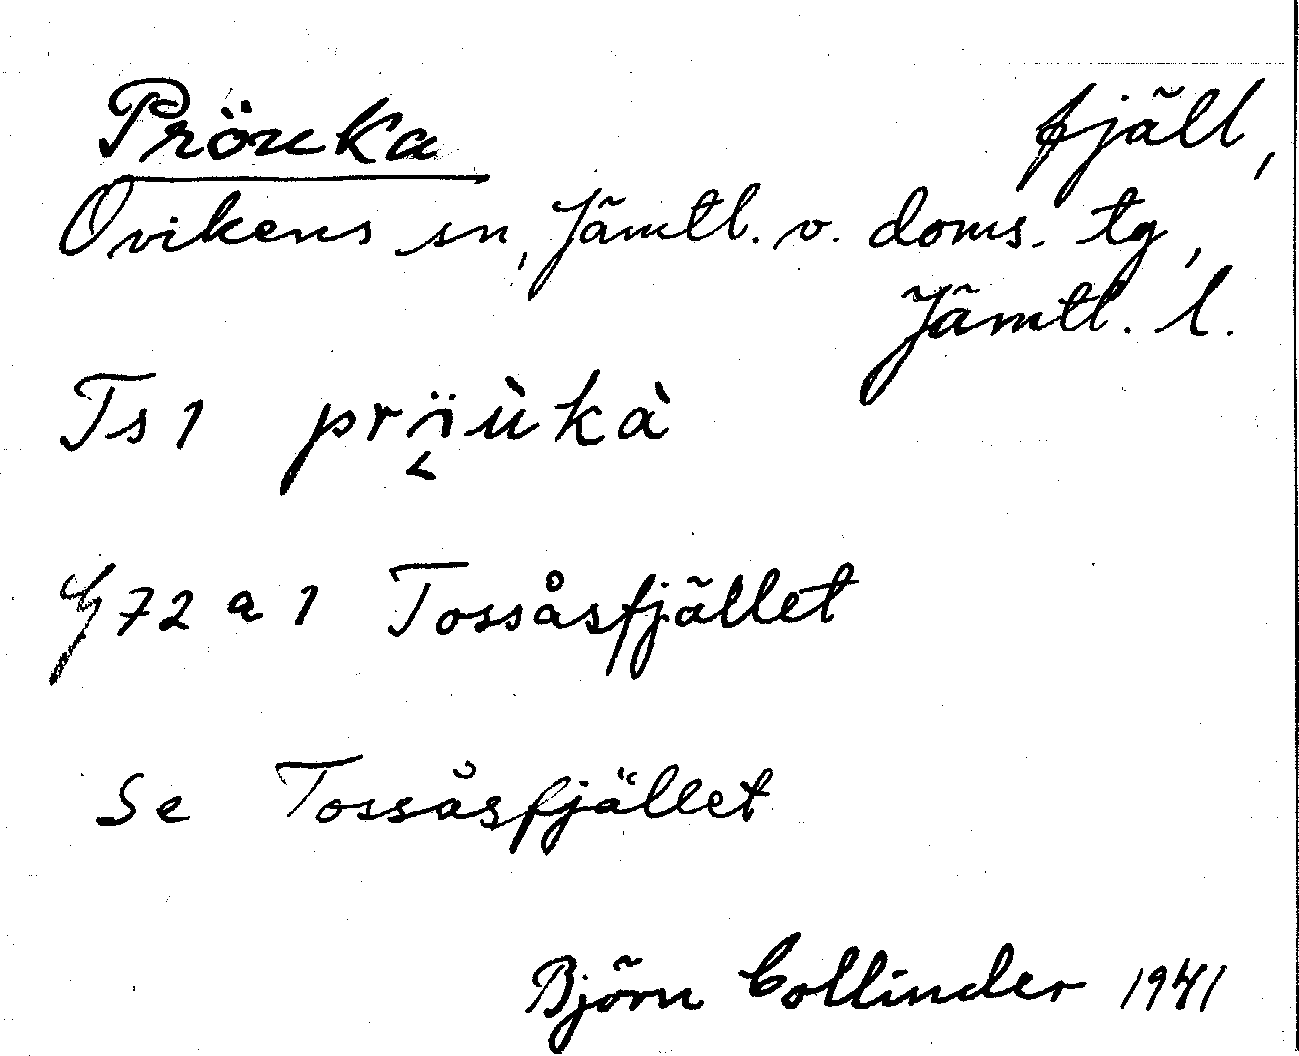 Pröuka fjäll,
Ovikens sn, Jämtl. v. doms. tg,
Jämtl. l.
Ts 1
G 72 a 1 Tossåsfjället
Se Tossåsfjället
Björn Collinder 1941